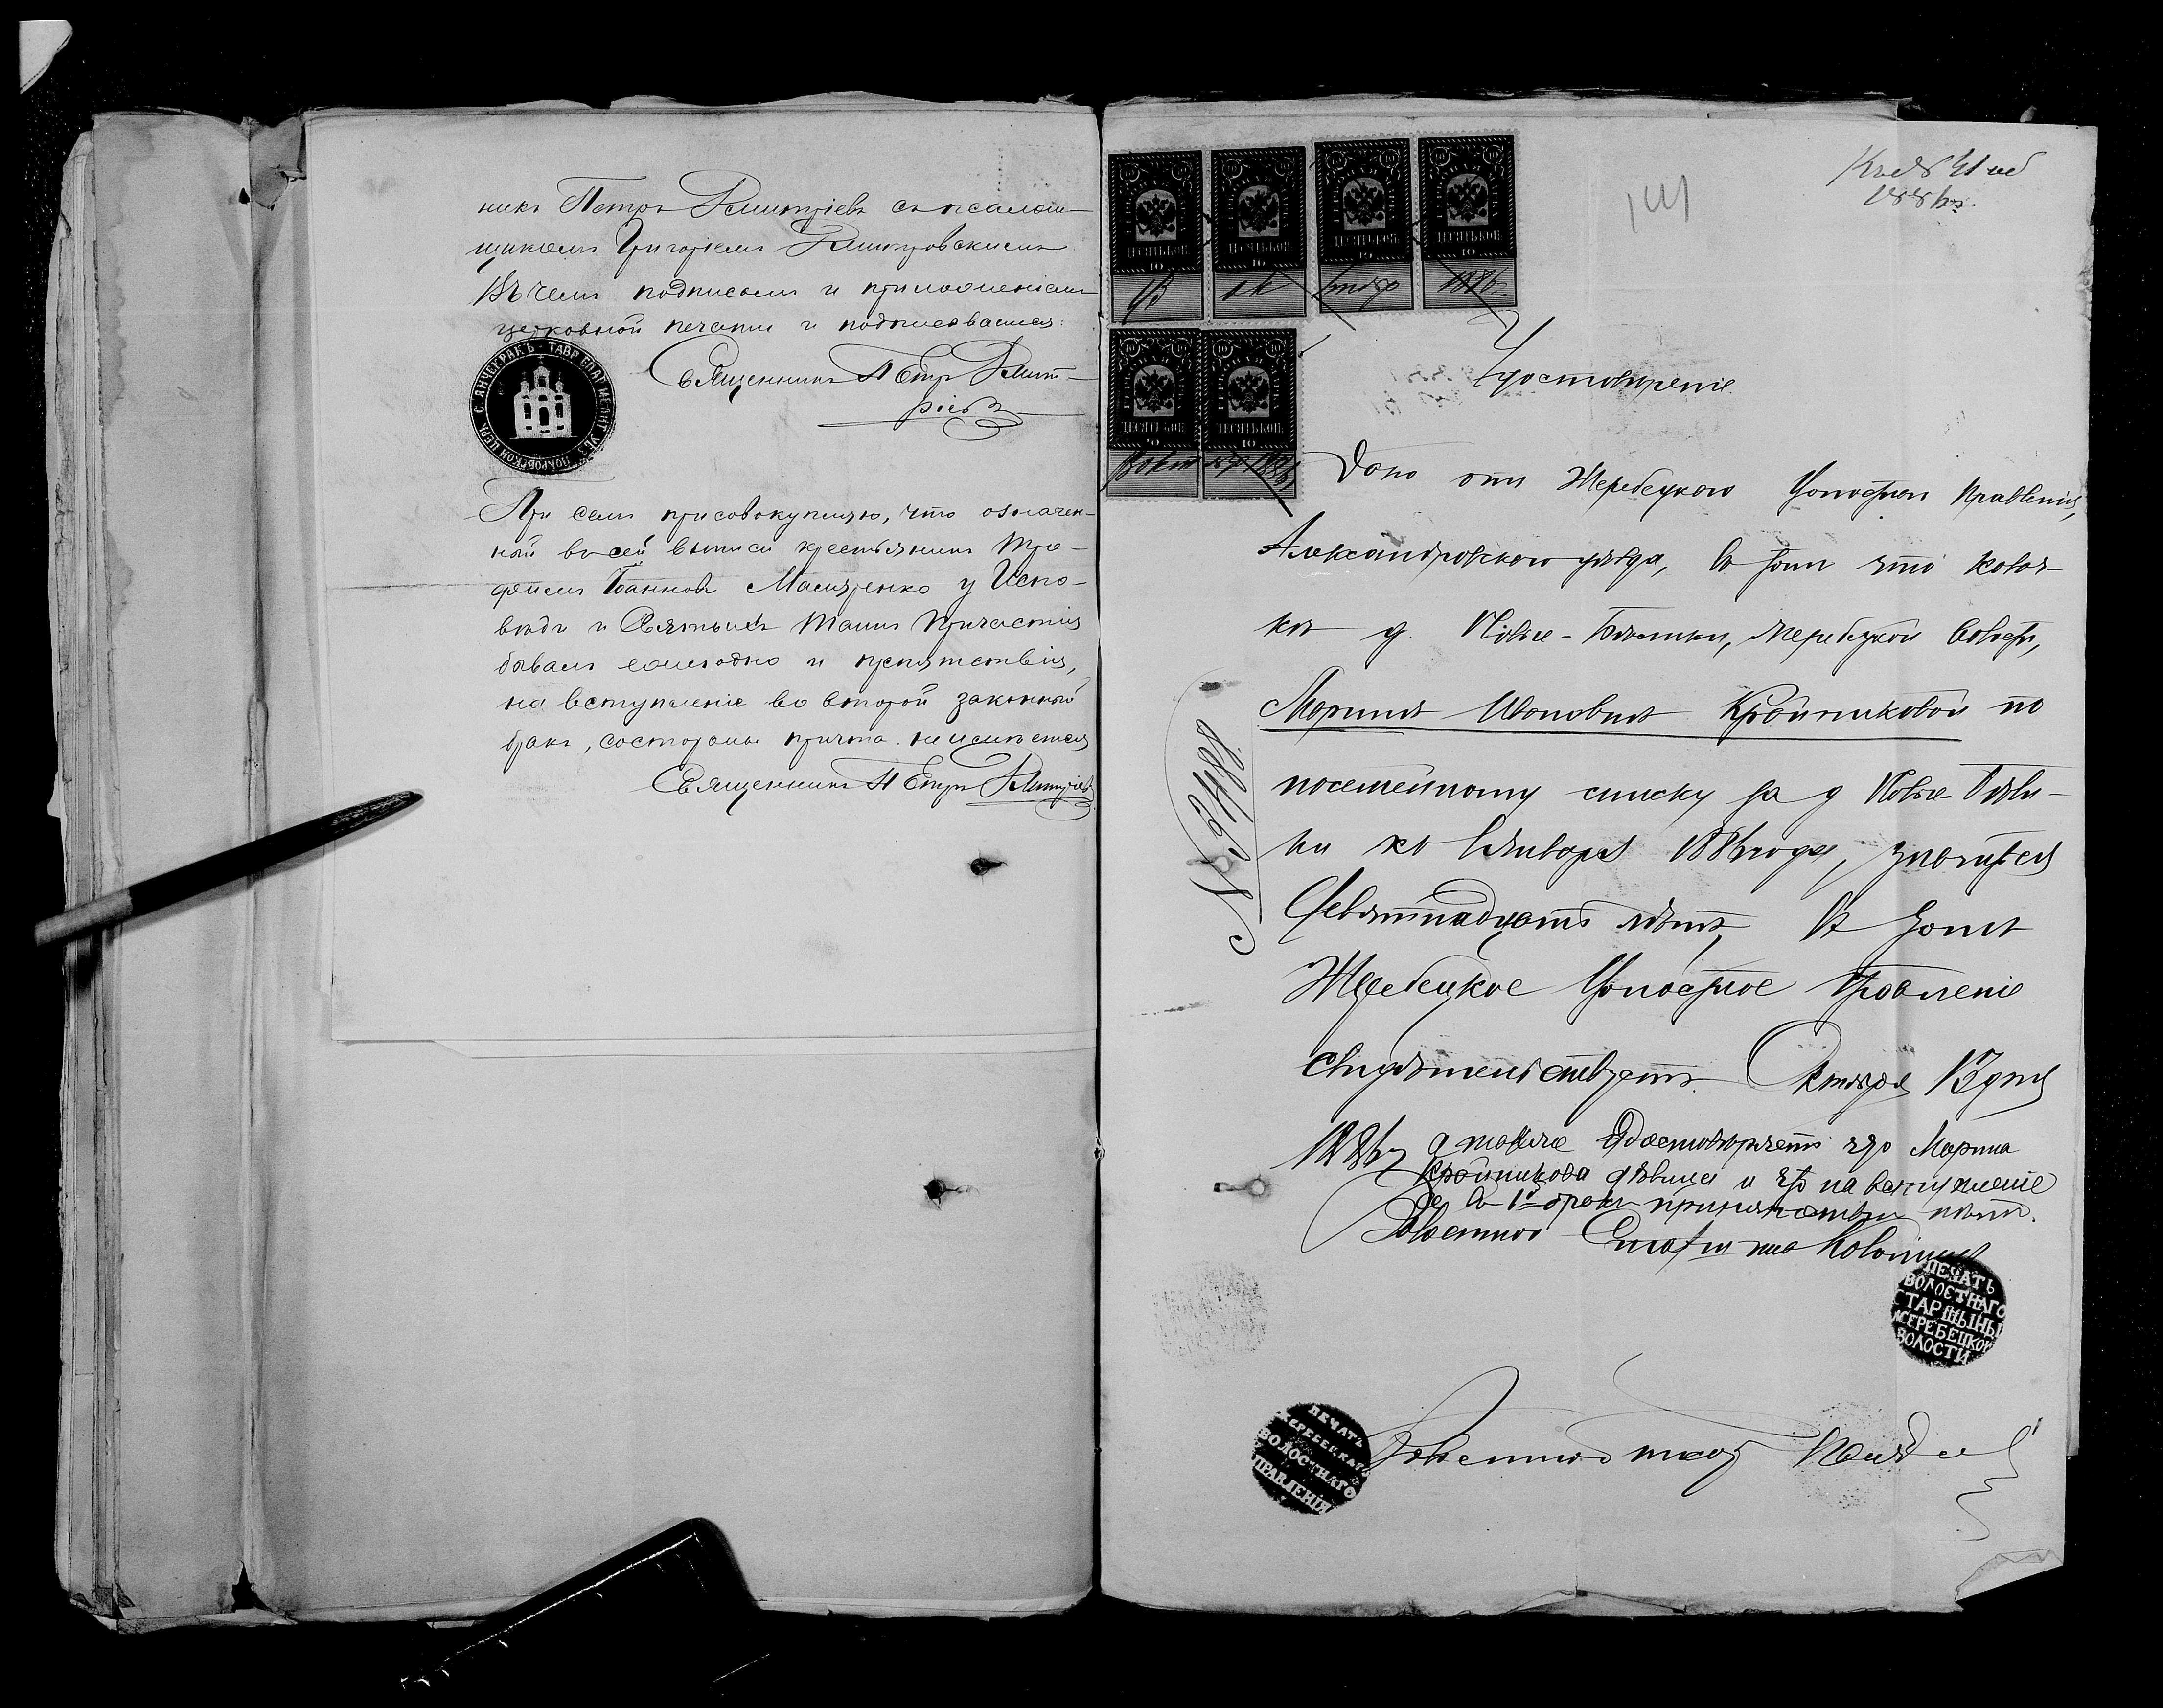 никъ Петръ Дмитріевъ съ псалом-
щикомъ Григоріемъ Дмитровскимъ
Въ чемъ подписомъ и приложеніемъ
церковной печати и подписываемся:
Священникъ Петръ Дмит-
ріевъ
С. АНЧЕКРАКЪ - ТАВР. ЕПАР. МЕЛИТ. УѢЗ. ПОКРОВСКОЙ ЦЕРК.
При семъ присовокупляю, что означен-
ный въ сей выписи крестьянинъ Тро-
фимъ Іоанновъ у Испо-
вѣди и Святыхъ Таинъ Причастія
бывалъ ежегодно и препятствія,
на вступленіе во второй законный
бракъ, со стороны причта не имѣется
Священникъ Петръ Дмитріевъ
141
1886 г.
ДЕСЯТЬ КОП. 10
ДЕСЯТЬ КОП. 10
ДЕСЯТЬ КОП. 10
ДЕСЯТЬ КОП. 10
13 ок тября 1886 г.
ДЕСЯТЬ КОП. 10
ДЕСЯТЬ КОП. 10
13 октяб 1886
Удостовѣреніе.
Дано отъ Жеребецкого Волостнаго Правленія,
Александровского уѣзда, въ томъ что
д. Новые-, Жеребецкой волости,
Марина Ивановна Крайниковой по
посемейному списку за д Новые-
ки къ 1 Января 1886 года, значится
Девятнадцать лѣтъ, въ томъ
Жеребецкое Волостное Правленіе
свидѣтельствуетъ. Октября 13 дня
1886 г а также удостовѣряетъ что Марина
Крайникова дѣвица и что на вступленіе
ее въ 1й бракъ препятствій нѣтъ.
Волостной Старшина
№
ПЕЧАТЬ
ВОЛОСТНАГО
СТАРШИНЫ
ЖЕРЕБЕЦКОЙ
ВОЛОСТИ
ПЕЧАТЬ
ЖЕРЕБЕЦКАГО
ВОЛОСТНАГО
ПРАВЛЕНІЯ
Волостной писарь